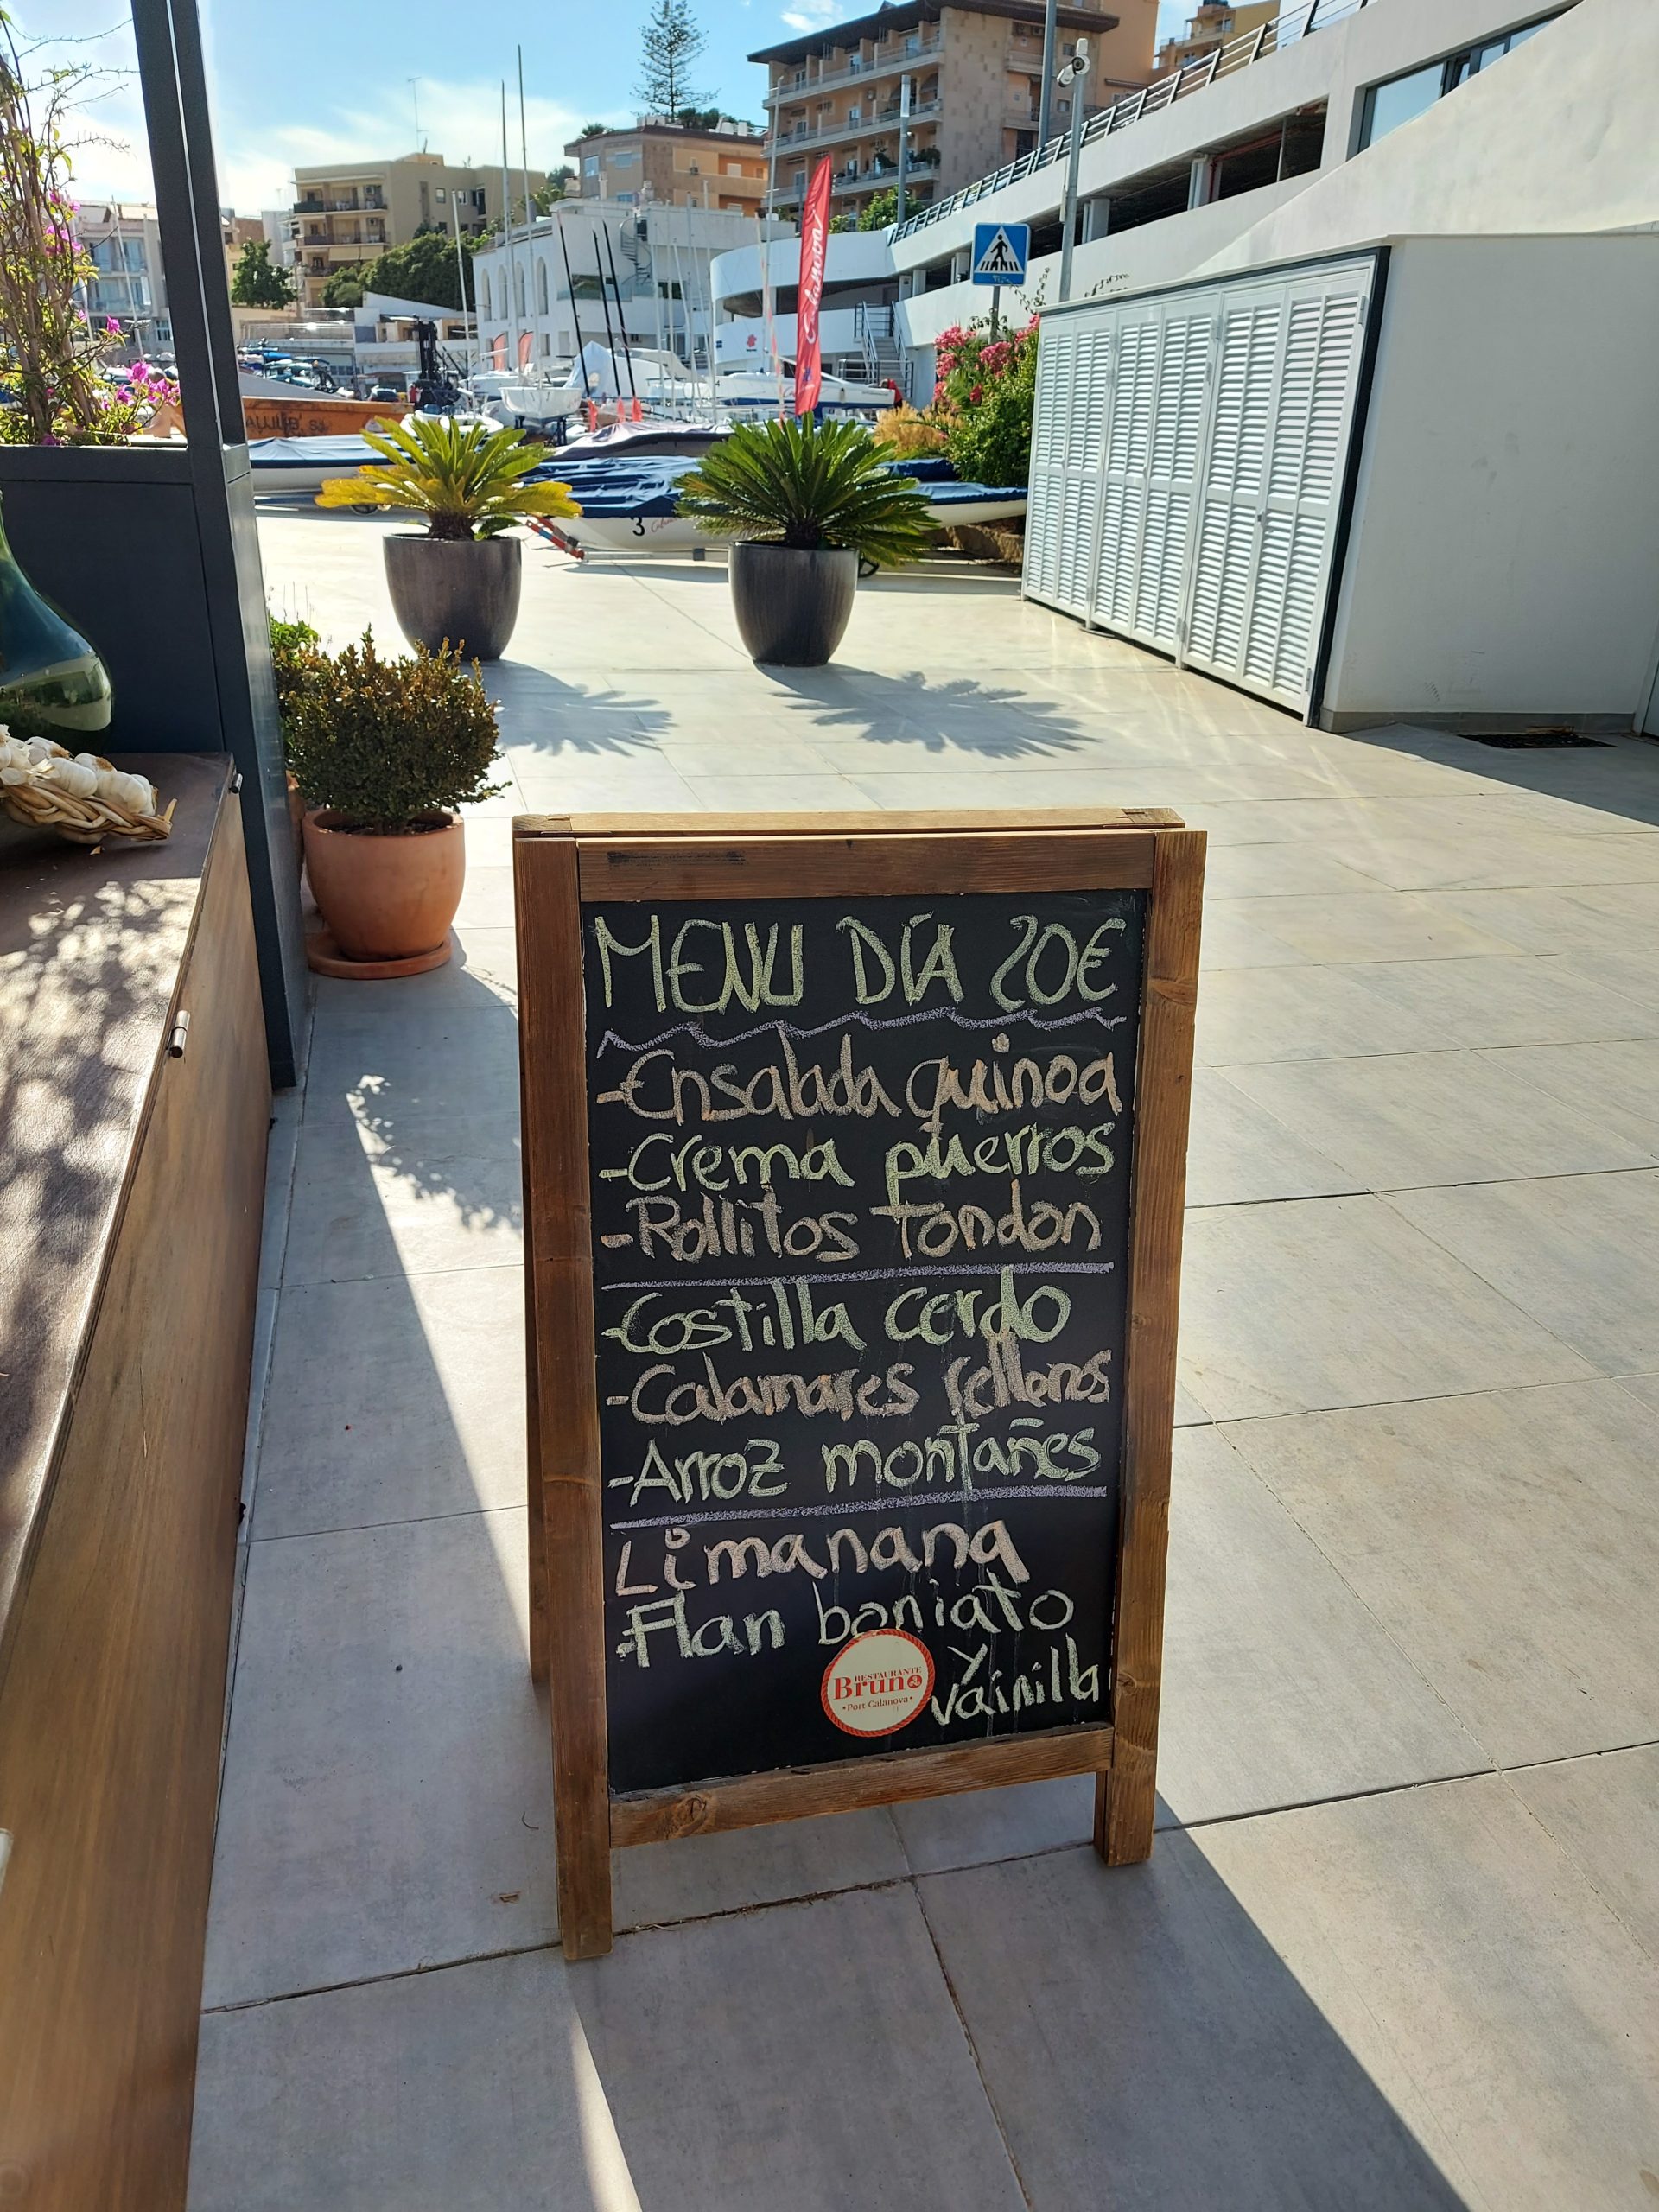 Calanova
AUJUB, S.
3
MENU DÍA 20€
-Ensalada quinoa
-Crema puerros
-Rollitos tondon
-Costilla cerdo
-Calamares rellenos
-Arroz montañes
Limanana
-Flan boniato
y
vainilla
RESTAURANTE
Bruno
•Port Calanova•